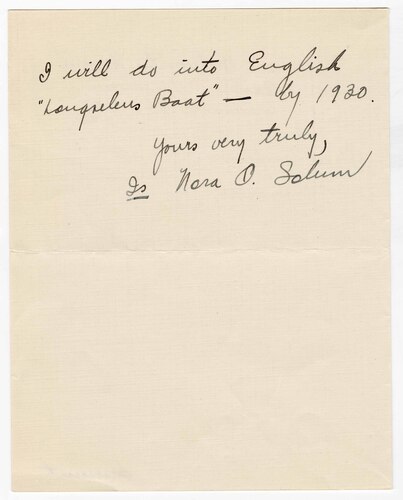 I will do into English
"Longselens Baat" — by 1930.
Yours very truly,
Is Nora O. Solum